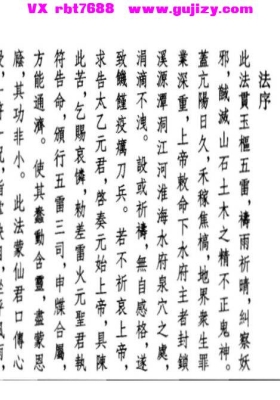 VX rbt7688 www.gujizy.com
法序
此法貫玉樞五雷，禱雨祈晴，糾察妖
邪，馘滅山石土木之精不正鬼神。
蓋亢陽日久，禾稼焦槁，地界衆生罪
業深重，上帝敕命下水府主者封鎖
溪源潭洞江河淮海水府泉穴之處，
涓滴不洩。設或祈禱，無自感格，遂
致饑饉疫癘刀兵。若不祈哀上帝，
求告太乙元君，啓奏元始上帝，具陳
此苦，乞賜哀憐，敕差雷火元聖君執
符告命，頒行五雷三司，申牒合屬，
方能通濟。使其蠢動含靈，盡蒙恩
庥，其功非小。此法蒙仙君口傳心